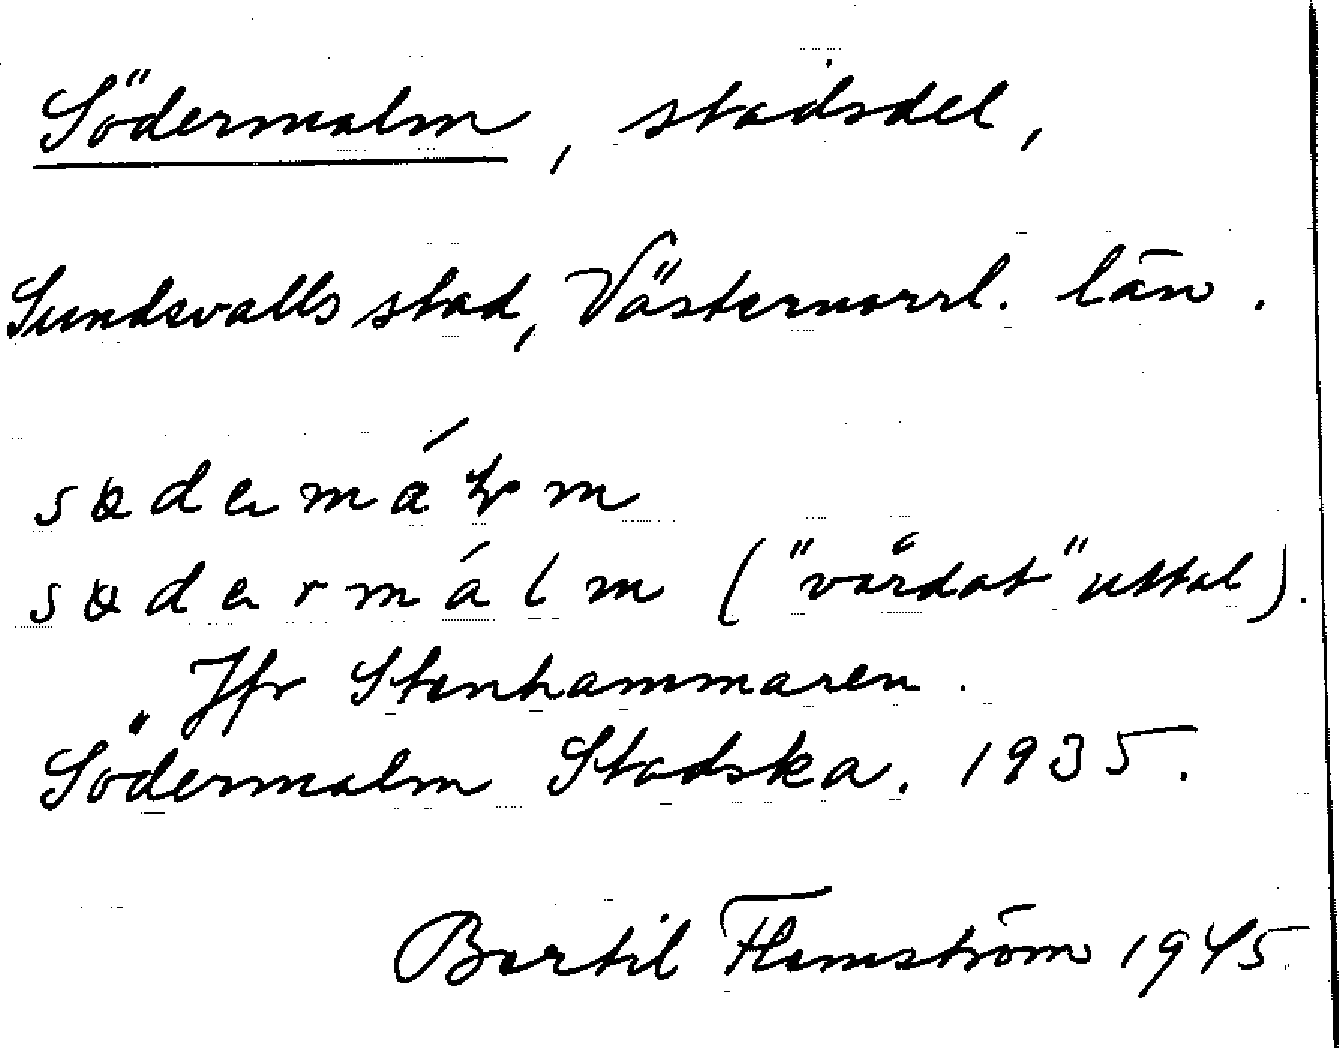 Södermalm, stadsdel,
Sundsvalls stad, Västernorrl. län.
södermálm ("vårdat" uttal).
Jfr Stenhammaren.
Södermalm Stadska. 1935.
Bertil Flemström 1945